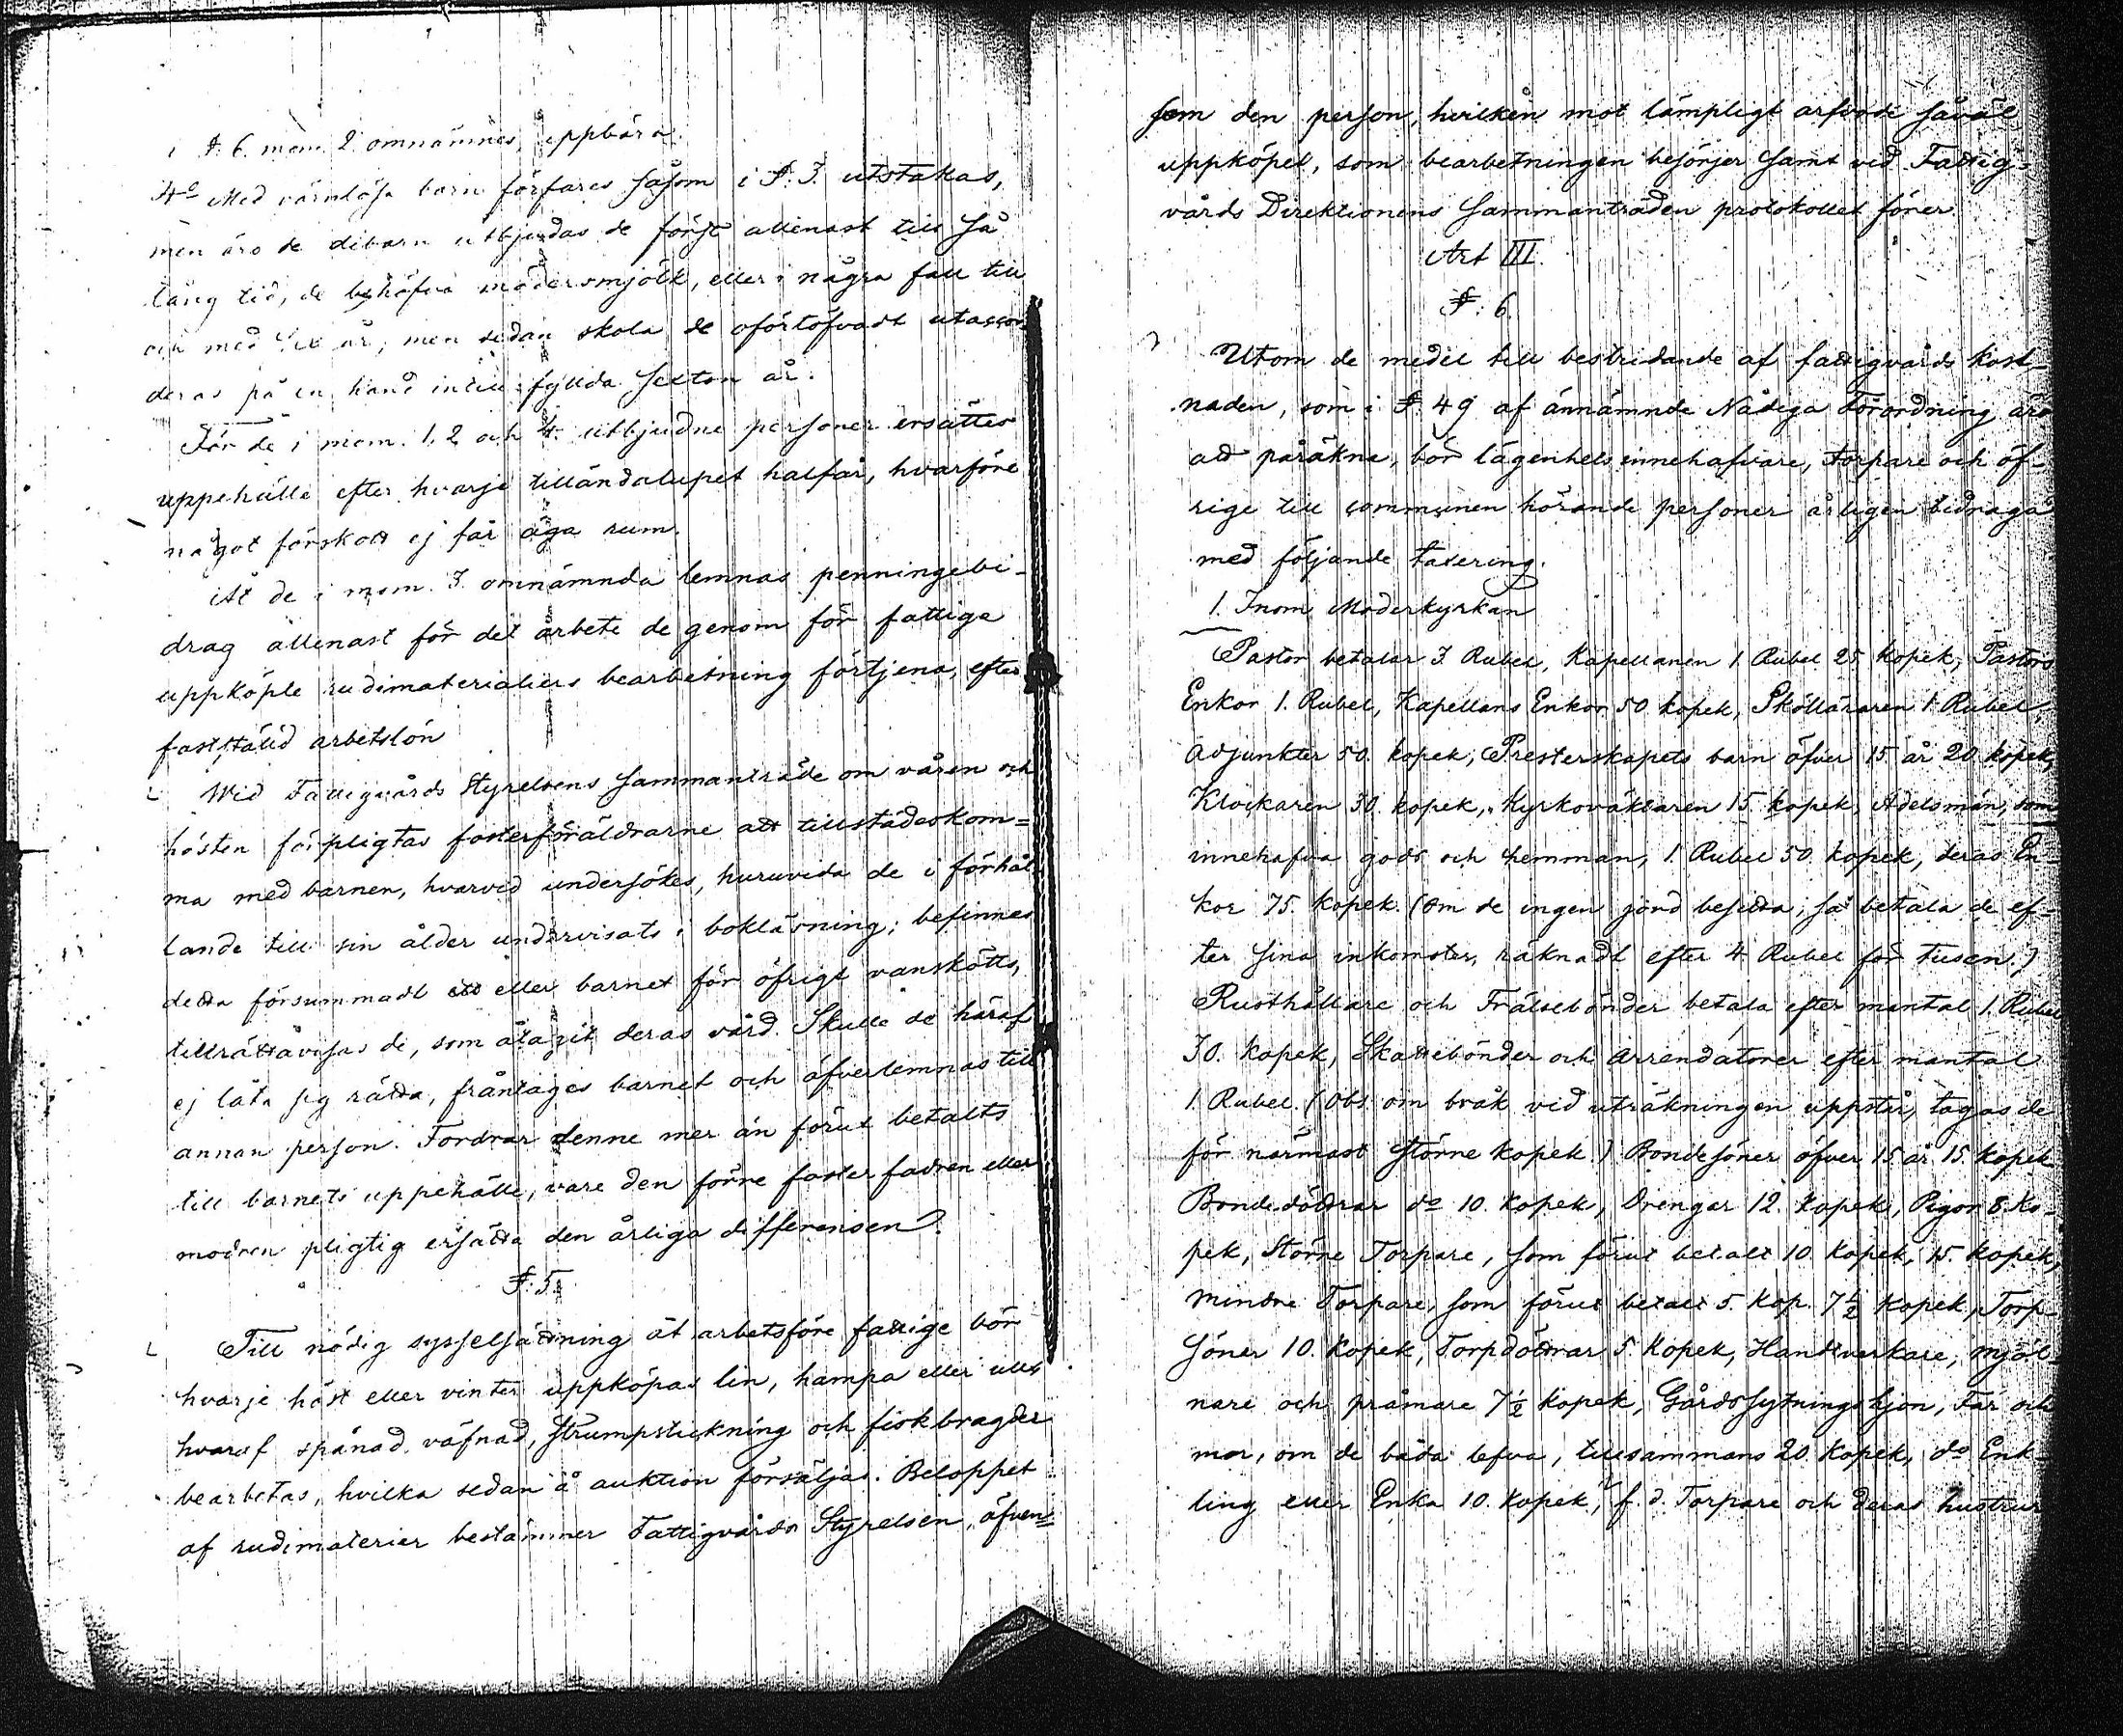 i §. 6. mom. 2. omnämnes, uppbära.
4o Med värnlösa barn förfares såsom i §. 3. utstakas,
men äro de dibarn utbjudas de först allenast till så
lång tid, de behöfva modersmjölk, eller i några fall till
och med sex år, men sedan skola de oförtöfvadt utaccor-
deras på en hand intill fyllda sexton år.
För de i mom. 1, 2 och 4. utbjudne personer ersättes
uppehälle efter hvarje tilländalupet halfår, hvarföre
något förskott ej får äga rum.
Åt de i mom. 3. omnämnda lemnas penningebi-
drag allenast för det arbete de genom för fattige
uppköpte rudimaterialiers bearbetning förtjena, efter
fastställd arbetslön
Wid Fattigvårds Styrelsens sammanträde om våren och
hösten förpligtas fosterföräldrarne att tillstädeskom=
ma med barnen, hvarvid undersökes, huruvida de i förhål-
lande till sin ålder undervisats i bokläsning; befinnes
detta försummadt eller barnet för öfrigt vanskötts,
tillrättavisas de, som åtagit deras vård. Skulle de häraf
ej låta sig rätta, fråntages barnet och öfverlemnas till
annan person. Fordrar denne mer än förut betalts
till barnets uppehälle, vare den förre fosterfadren eller
modren pligtig ersätta den årliga differensen.
§. 5.
Till nödig sysselsättning åt arbetsföre fattige bör
hvarje höst eller vinter uppköpas lin, hampa eller ull,
hvaraf spånad, väfnad, strumpstickning och fiskbragder
bearbetas, hvilka sedan å auktion försäljas. Beloppet
af rudimaterier bestämmer Fattigvårds Styrelsen, äfven=
som den person, hvilken mot lämpligt arfvode såväl
uppköpet, som bearbetningen besörjer samt vid Fattig=
vårds Direktionens sammanträden protokollet förer
Art III.
§. 6.
Utom de medel till bestridande af fattigvårds kost-
naden, som i §. 49 af ännämnde Nådiga Förordning äro
att påräkna, bör lägenhets innehafvare, torpare och öf-
rige till communen hörande personer årligen bidraga
med följande taxering.
1. Inom Moderkyrkan
Pastor betalar 3. Rubel, Kapellanen 1. Rubel 25 kopek, Pastors
Enkor 1. Rubel, Kapellans Enkor 50 kopek, Skolläraren 1 Rubel,
Adjunkter 50. kopek, Presterskapets barn öfver 15 år 20 kopek,
Klockaren 30. kopek, Kyrkoväktaren 15. kopek, Adelsmän, som
innehafva gods och hemman, 1. Rubel 50. kopek, deras En-
kor 75. kopek. (Om de ingen jord besitta, så betala de ef-
ter sina inkomster, räknadt efter 4 Rubel för tusen.)
Rusthållare och Frälsebönder betala efter mantal 1. Rubel
30. kopek, Skattebönder och Arrendatorer efter mantal
1. Rubel. (Obs. om bråk vid uträkningen uppstår, tagas de
för närmast större kopek.) Bondesöner öfver 15 år 15. kopek
Bondedöttrar do 10. kopek, Drengar 12. kopek, Pigor 8. ko-
pek, Större Torpare, som förut betalt 10. kopek, 15. kopek,
mindre Torpare, som förut betalt 5. kop. 7 1/2 kopek, Torp-
söner 10 kopek, Torpdöttrar 5 kopek, Handtverkare, mjöl-
nare och pråmare 7 1/2 kopek, Gårdssytningshjon, Far och
mor, om de båda lefva, tillsammans 20. kopek, do Enk-
ling eller Enka 10. kopek, f. d. Torpare och deras hustrur